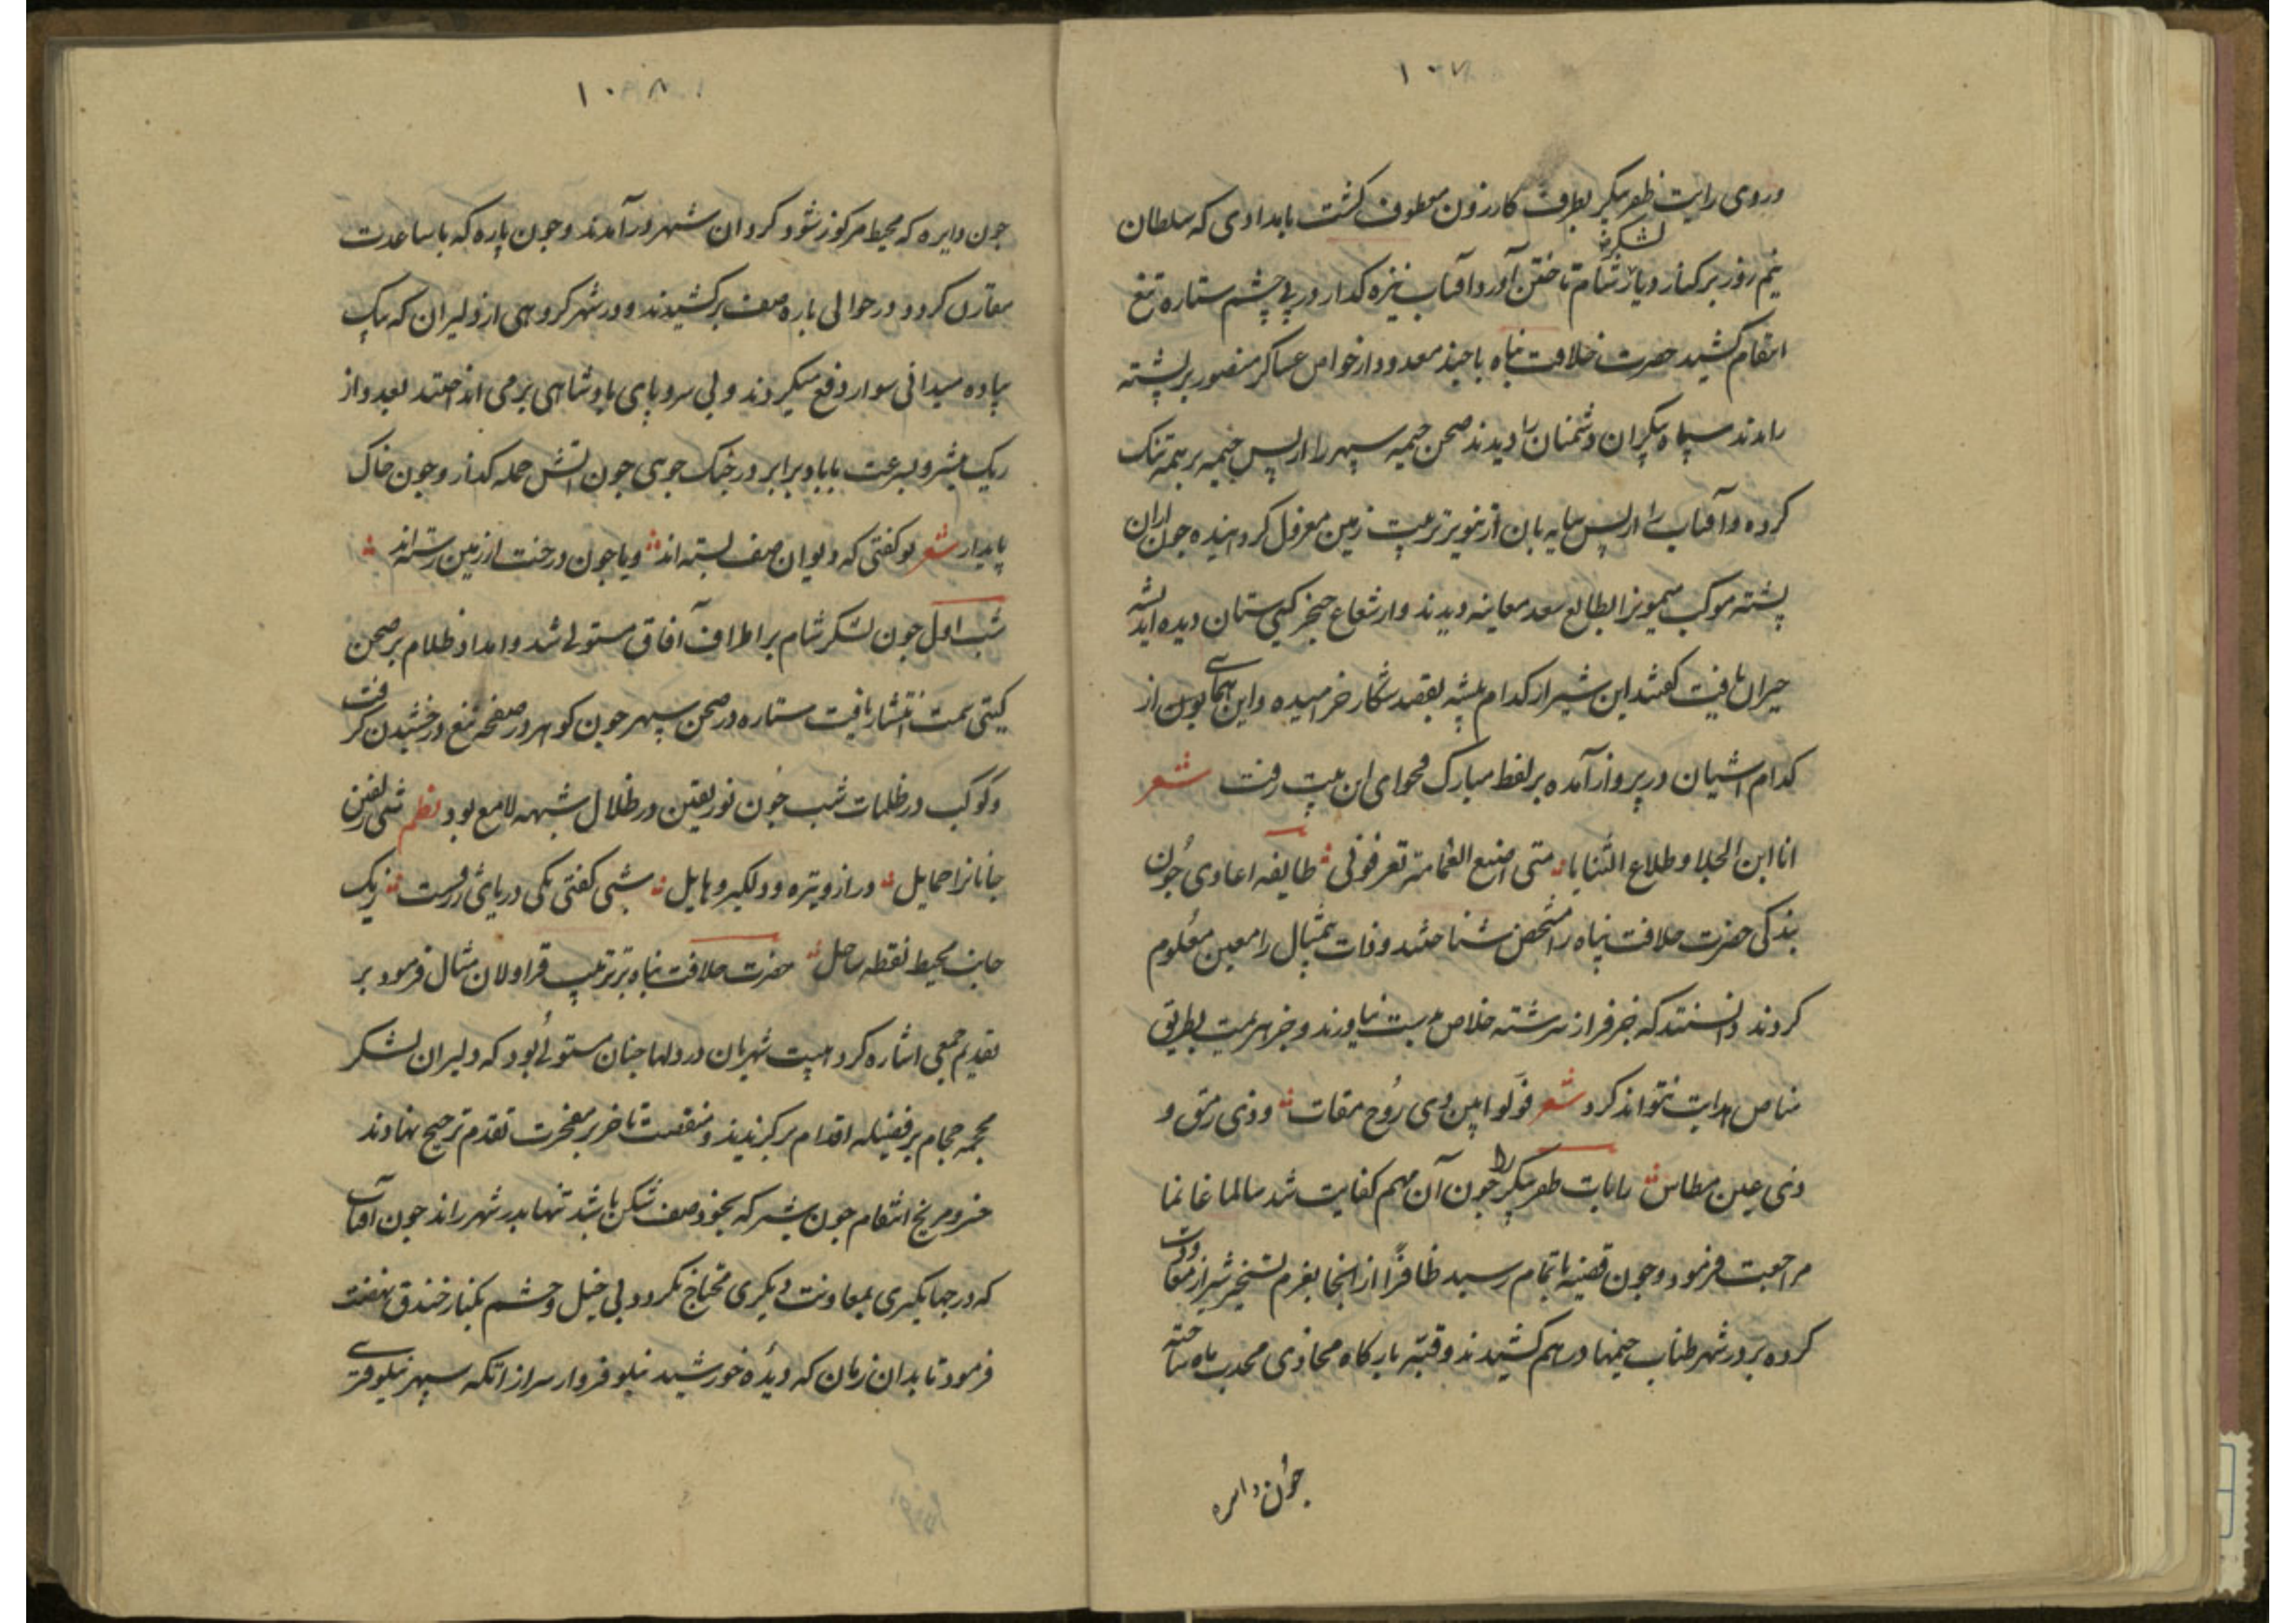 ۱۰۷
و روی رایت ظفرپیکر بطرف کازرون معطوف کشت بامدادی که سلطان
نیم روز برکنار دیار شام تاختن آورد و آفتاب نیزه کدار در پی چشم ستاره تیغ
لشکرش
انتقام کشید حضرت خلافت پناه با چند معدود از خواص عساکر منصور بر پشته
راندند سپاه بیکران دشمنان را دیدند صحن خیمه سپهر را از پس خیمه بر همه تنک
کرده و آفتاب را از پس سایه بان از تنویر تربیت زمین معزول کردانیده چون از ان
پشته موکب میمون را بطالع سعد معاینه دیدند و از شعاع خنجر کیتی ستان دیده اندیشه
حیران یافت کفتند این شیر از کدام بیشه بقصد شکار خرامیده و این همای همایون از
کدام اشیان در پرواز آمده بر لفظ مبارک فحوای این بیت رفت شعر
انا ابن الجلا و طلاع الثنایا متی اضع العمامة تعرفونی طایفه اعادی چون
بندکی حضرت خلافت پناه را مشخص شناختند و ذات بیمثال را معین معلوم
کردند دانستند که جز فرار سر رشته خلاص بدست نیاورند و جز هزیمت بطریق
مناص هدایت نتواند کرد شعر فولوا بین ذی روح مقات و ذی رمق و
ذی عین مطاس رایات ظفرپیکر را چون آن مهم کفایت شد سالما غانما
مراجعت فرمود و چون قضیه باتمام رسید ظافرا از انجا بعزم تسخیر شیراز معاودت
کرده بر در شهر طناب خیمها در هم کشیدند و قبه بارکاه محاذی محدب ماه ساخته
چون دایره
۱۰۸
چون دایره که محیط مرکوز شود کردان شهر در آمدند و چون یاره که با ساعدت
مقارن کردد در حوالی باره صف برکشیدند و در شهر کروهی از دلیران که بیک
پیاده میدانی سوار دفع میکردند و بی سر و پای پادشاهی بر می انداختند بعدد از
ریک بیشتر و بسرعت با باد برابر در جنک جوی چون آتش حمله کدار و چون خاک
پایدار شعر تو کفتی که دیوان صف بسته اند و یا چون درخت از زمین رسته اند
شب اول چون لشکر شام بر اطراف آفاق مستولی شد و امداد ظلام بر صحن
کیتی سمت انتشار یافت ستاره در صحن سپهر چون کوهر در صفحه تیغ درخشیدن کرفت
و کوکب در ظلمات شب چون نور یقین در ظلال شبهه لامع بود نظم شبی زلفین
جانانرا حمایل دراز و تیره و دلکیر و هایل شبی کفتی یکی دریای ژرفست زیک
جانب محیط نقطه ساحل حضرت خلافت پناه بترتیب قراولان مثال فرمود بر
تقدیم جمعی اشاره کرد هیبت شهریان در دلها چنان مستولی بود که دلیران لشکر
محجمه حجام بر فضیله اقدام برکزیدند و منقصت تاخر بر مفخرت تقدم ترجیح نهادند
خسرو مریخ انتقام چون شیر که بخود صف شکن باشد تنها بدر شهر راند چون آفتاب
که در جهانکیری بمعاونت دیکری محتاج نکردد بی خیل و حشم بکنار خندق نهضت
فرمود تا بدان زمان که دیده خورشید نیلوفروار سر از آبکه سپهر نیلوفری